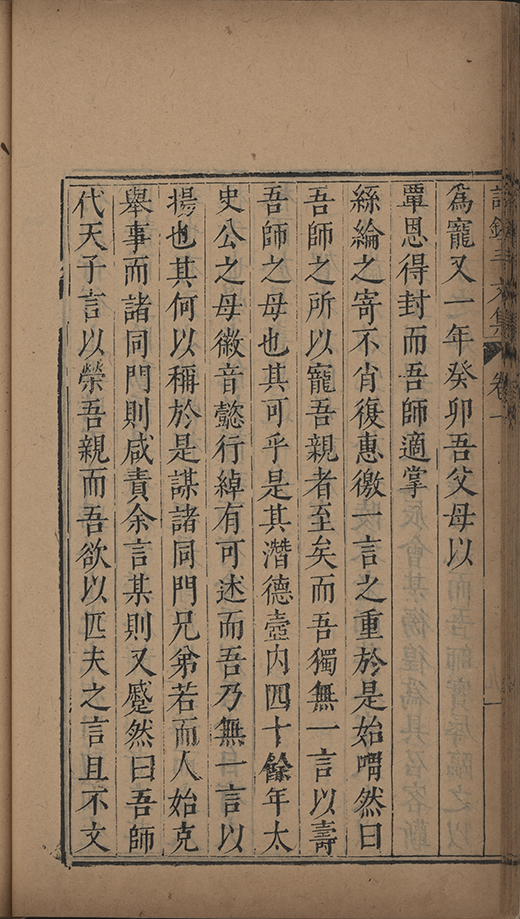 爲寵又一年癸卯吾父母以
覃恩得封而吾師適掌
絲綸之寄不肖復惠徼一言之重於是始喟然曰
吾師之所以寵吾親者至矣而吾獨無一言以壽
吾師之母也其可乎是其潛德壼内四十餘年太
史公之母徽音懿行綽有可述而吾乃無一言以
揚也其何以稱於是謀諸同門兄弟若而人始克
舉事而諸同門則咸責余言某則又蹙然曰吾師
代天子言以榮吾親而吾欲以匹夫之言且不文